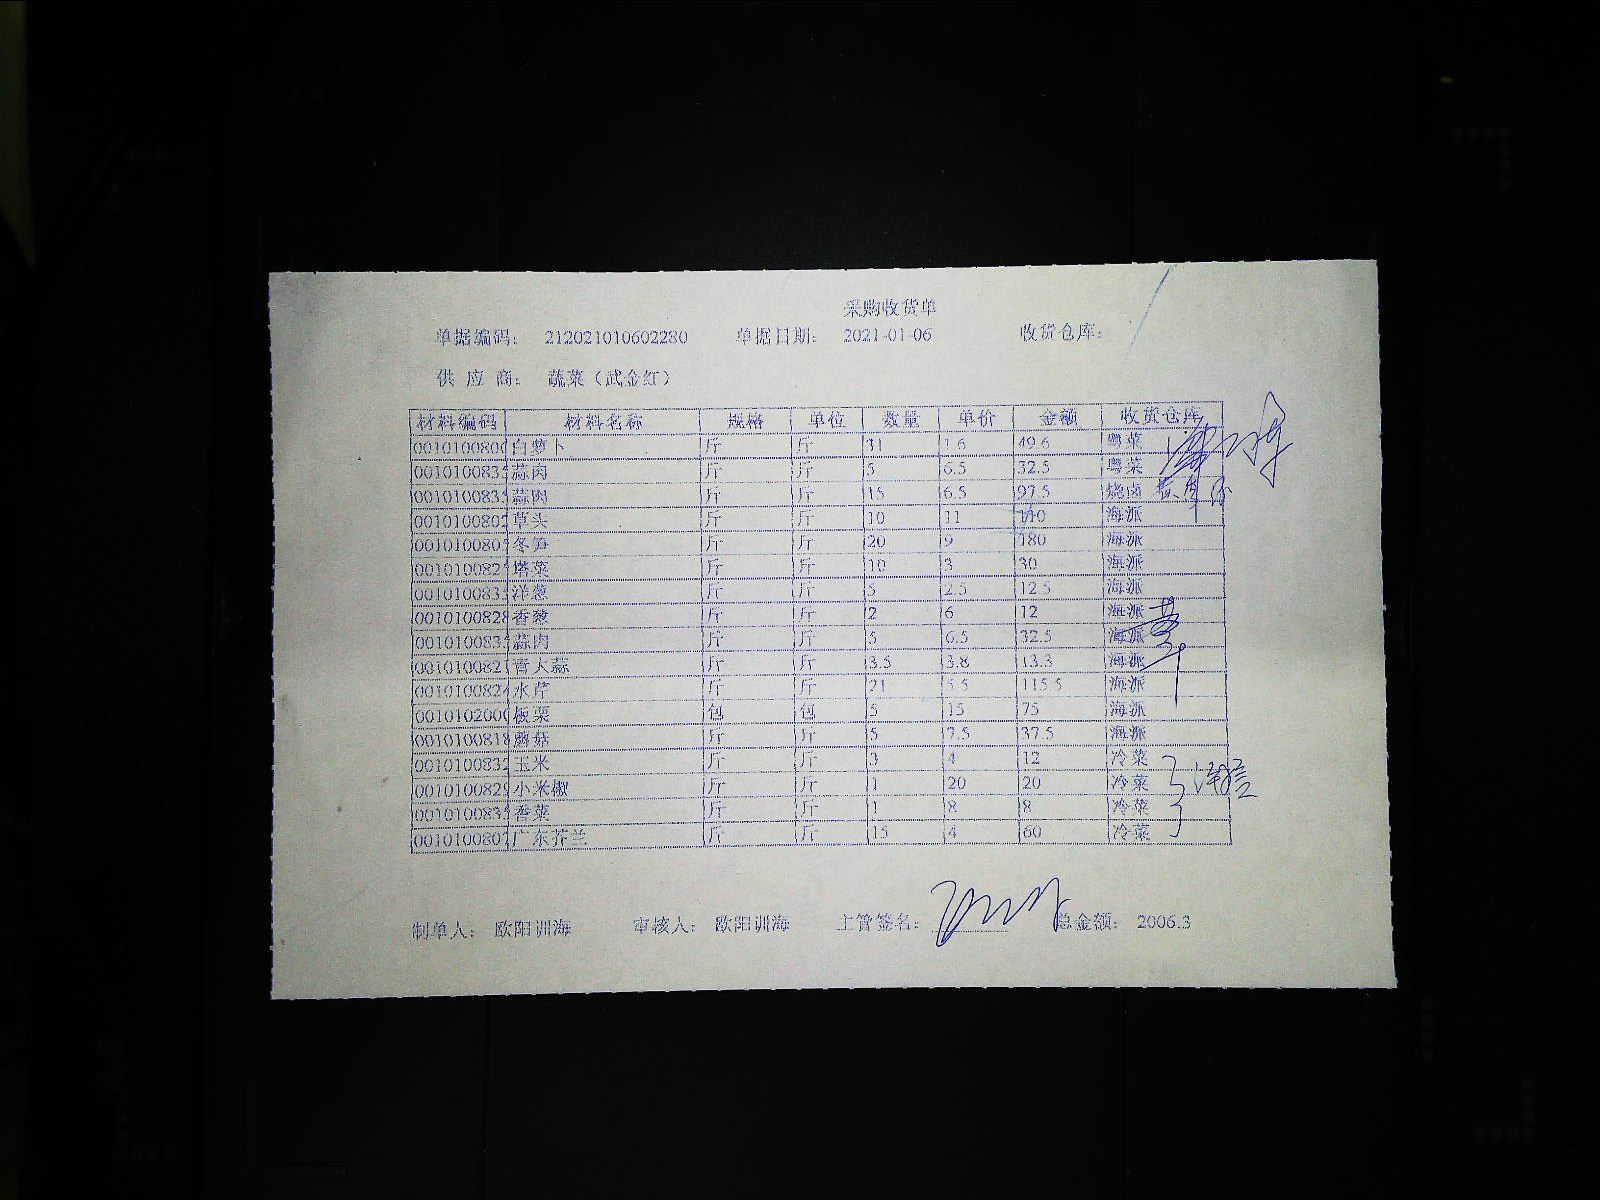 采购收货单
单据编码： 212021010602280 单据日期： 2021-01-06 收货仓库：
供 应 商： 蔬菜（武金红）
材料编码 材料名称 规格 单位 数量 单价 金额 收货仓库
0010100800 白萝卜 斤 斤 31 1.6 49.6 粤菜
001010083 蒜肉 斤 斤 5 6.5 32.5 粤菜
001010083 蒜肉 斤 斤 15 6.5 97.5 烧卤
001010080 草头 斤 斤 10 11 110 海派
001010080 冬笋 斤 斤 20 9 180 海派
001010082 塔菜 斤 斤 10 3 30 海派
001010083 洋葱 斤 斤 5 2.5 12.5 海派
0010100828 香葱 斤 斤 2 6 12 海派
001010083 蒜肉 斤 斤 5 6.5 32.5 海派
001010082 青大蒜 斤 斤 3.5 3.8 13.3 海派
001010082 水芹 斤 斤 21 5.5 115.5 海派
001010200 板栗 包 包 5 15 75 海派
0010100818 蘑菇 斤 斤 5 7.5 37.5 海派
0010100832 玉米 斤 斤 3 4 12 冷菜
0010100829 小米椒 斤 斤 1 20 20 冷菜
001010083 香菜 斤 斤 1 8 8 冷菜
001010080 广东芥兰 斤 斤 15 4 60 冷菜
制单人： 欧阳训海 审核人： 欧阳训海 主管签名： 总金额： 2006.3